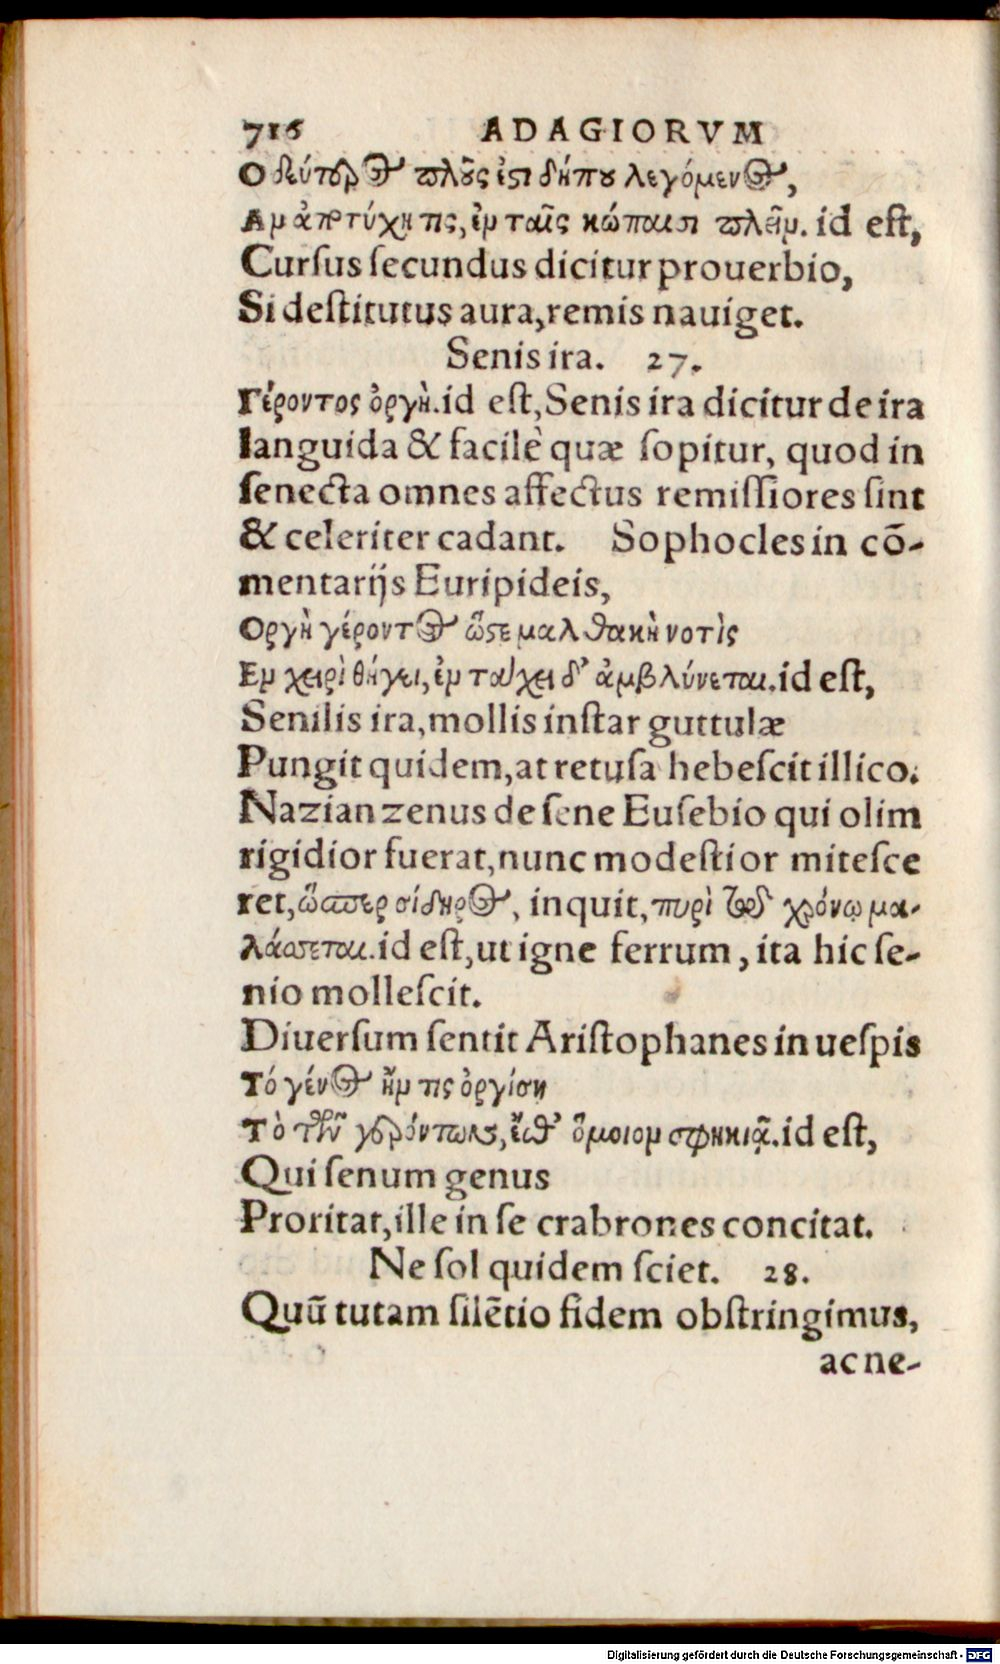 716 ADAGIORVM
Ο δεύτερος πλοῦς ἐστι δήπου λεγόμενος,
Αν ἀποτύχη τις, ἐν ταῖς κώπαισι πλεῖν. id eſt,
Curſus ſecundus dicitur prouerbio,
Si deſtitutus aura, remis nauiget.
Senis ira. 27.
Γέροντος ὀργὴ. id eſt, Senis ira dicitur de ira
languida & facilè quæ ſopitur, quod in
ſenecta omnes affectus remiſſiores ſint
& celeriter cadant. Sophocles in cō-
mentarijs Euripideis,
Οργὴ γέροντος ὥστε μαλθακὴ νοτὶς
Εν χειρὶ θήγει, ἐν τάχει δ' ἀμβλύνεται. id eſt,
Senilis ira, mollis inſtar guttulæ
Pungit quidem, at retuſa hebeſcit illico.
Nazianzenus de ſene Euſebio qui olim
rigidior fuerat, nunc modeſtior miteſce
ret, ὥσπερ σίδηρος, inquit, πυρὶ τῷ χρόνῳ μα-
λάσσεται. id eſt, ut igne ferrum, ita hic ſe-
nio molleſcit.
Diuerſum ſentit Ariſtophanes in ueſpis
Τό γένος ἤν τις ὀργίση
Τὸ τῶν γερόντων, ἔσθ' ὅμοιον σφηκιᾷ. id eſt,
Qui ſenum genus
Proritat, ille in ſe crabrones concitat.
Ne ſol quidem ſciet. 28.
Quū tutam ſilētio fidem obſtringimus,
ac ne-
Digitalisierung gefördert durch die Deutsche Forschungsgemeinschaft - DFG